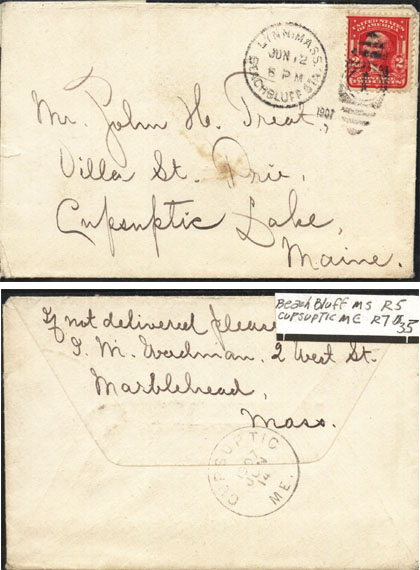 LYNN, MASS.
JUN 12
6 PM
BEACHBLUFF STA.
1907
UNITED STATES
OF AMERICA
2
Mr. John H. Treat,
Villa St.
Cupsuptic Lake,
Maine.
Beach Bluff MS R5
CUPSUPTIC ME R7
35
If not delivered please
Woodman, 2 West St.
Marblehead,
Mass.
CUPSUPTIC
JUN
14
ME.